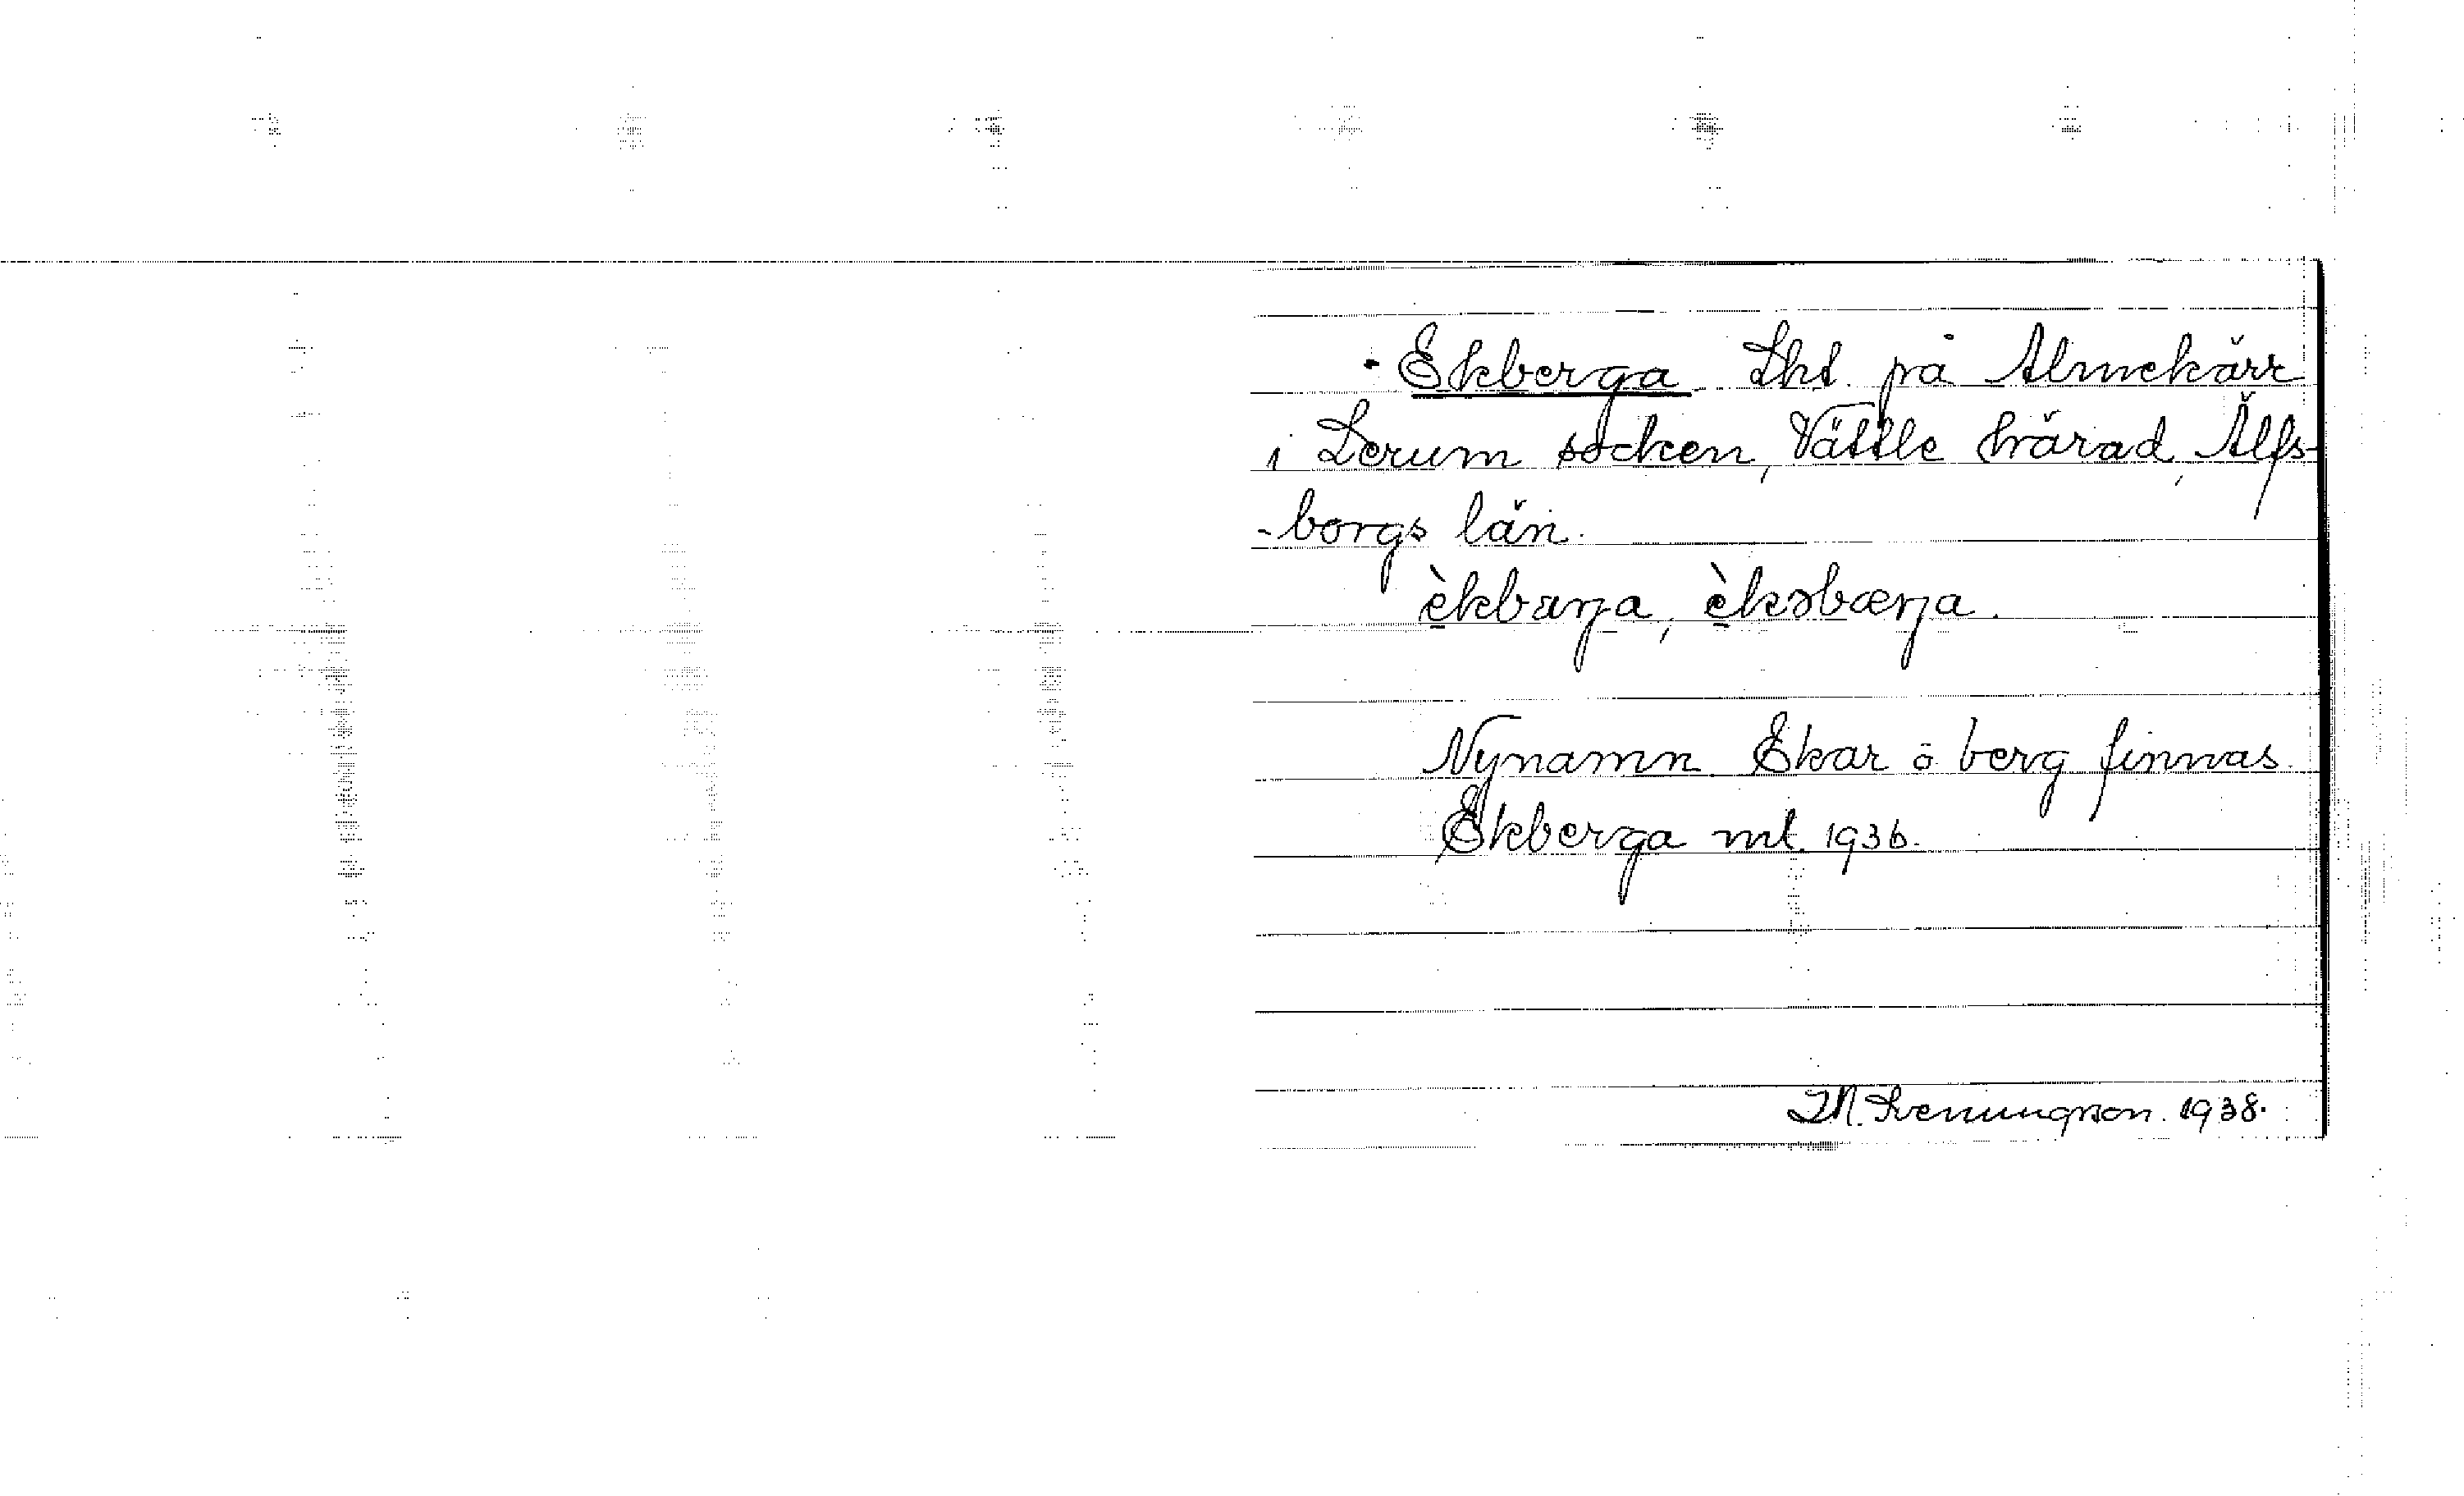 Ekberga Lht på Almekärr
i Lerum socken, Vättle härad, Älfs-
-borgs län.
èkbærja, èksbærja.
Nynamn. Ekar o berg finnas.
Ekberga mt. 1936.
I M. Svenungson. 1938.